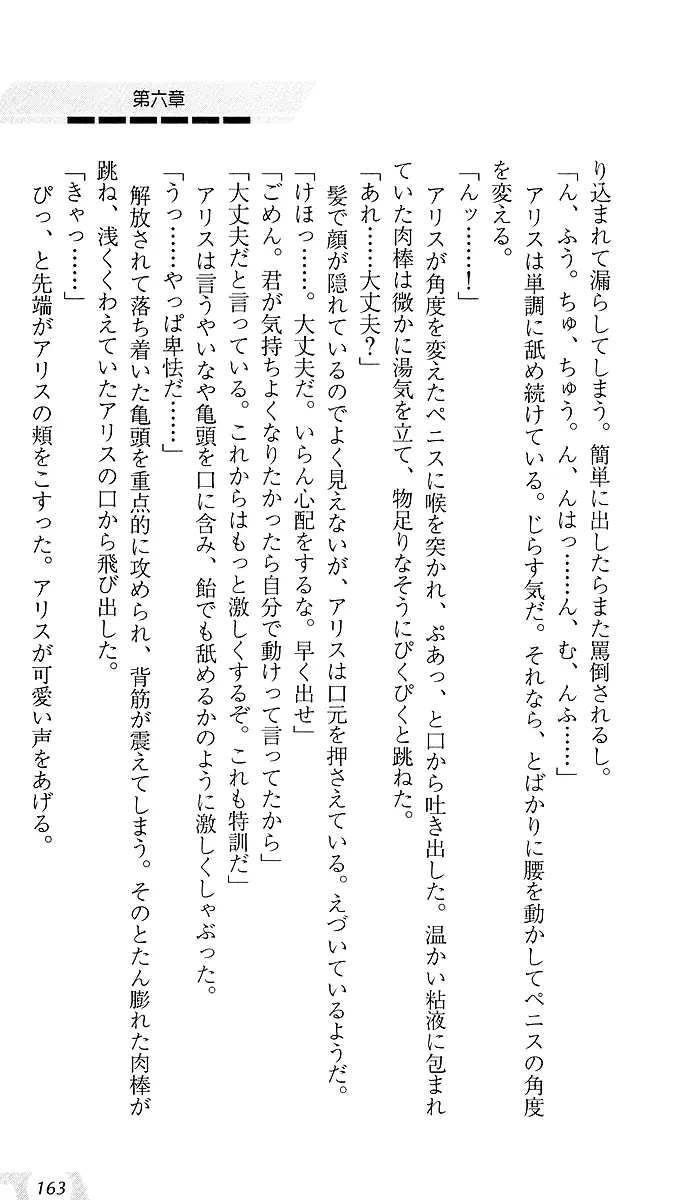 第六章
り込まれて漏らしてしまう。簡単に出したらまた罵倒されるし。
「ん、ふう。ちゅ、ちゅう。ん、んはっ……ん、む、んふ……」
アリスは単調に舐め続けている。じらす気だ。それなら、とばかりに腰を動かしてペニスの角度
を変える。
「んッ……！」
アリスが角度を変えたペニスに喉を突かれ、ぷあっ、と口から吐き出した。温かい粘液に包まれ
ていた肉棒は微かに湯気を立て、物足りなそうにぴくぴくと跳ねた。
「あれ……大丈夫？」
髪で顔が隠れているのでよく見えないが、アリスは口元を押さえている。えづいているようだ。
「けほっ……。大丈夫だ。いらん心配をするな。早く出せ」
「ごめん。君が気持ちよくなりたかったら自分で動けって言ってたから」
「大丈夫だと言っている。これからはもっと激しくするぞ。これも特訓だ」
アリスは言うやいなや亀頭を口に含み、飴でも舐めるかのように激しくしゃぶった。
「うっ……やっぱ卑怯だ……」
解放されて落ち着いた亀頭を重点的に攻められ、背筋が震えてしまう。そのとたん膨れた肉棒が
跳ね、浅くくわえていたアリスの口から飛び出した。
「きゃっ……」
ぴっ、と先端がアリスの頬をこすった。アリスが可愛い声をあげる。
163